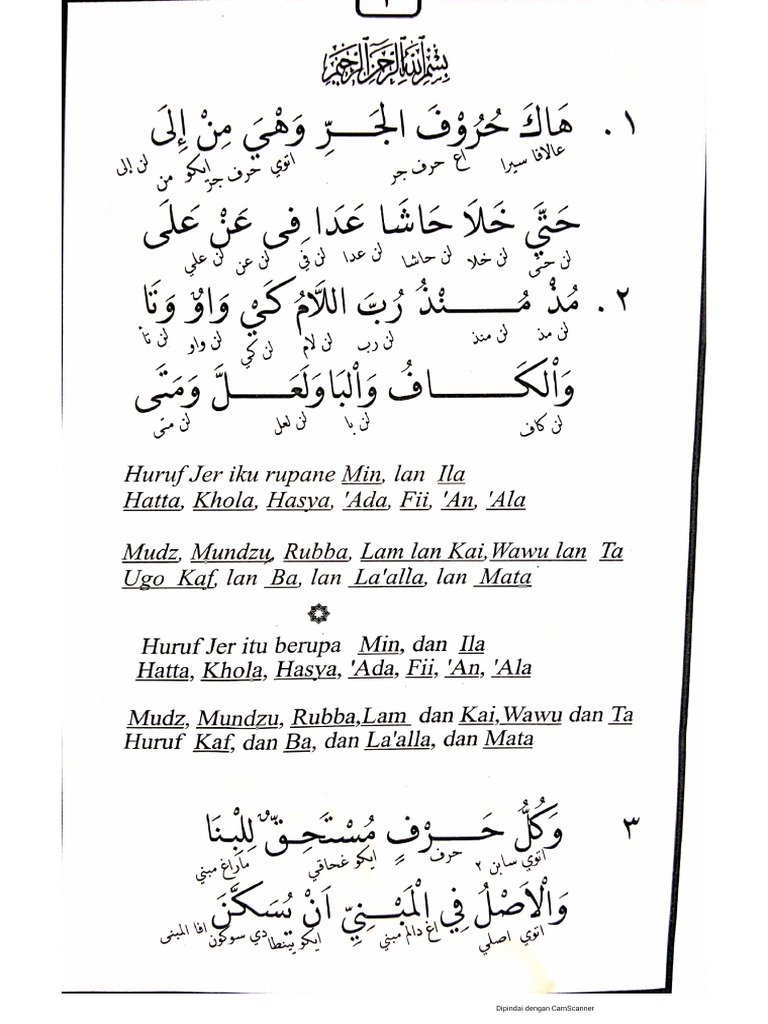 ١
بِسْمِ اللهِ الرَّحْمٰنِ الرَّحِيْمِ
١. هَاكَ حُرُوْفَ الجَـــرِّ وَهْيَ مِنْ إِلَى
عالاقا سيرا اع حرف جر اتوي حرف جر ايكو من لن إلى
حَتَّى خَلَا حَاشَا عَدَا فِى عَنْ عَلَى
لن حتى لن خلا لن حاشا لن عدا لن في لن عن لن علي
٢. مُذْ مُـــــنْذُ رُبَّ اللَّامُ كَيْ وَاوٌ وَتَا
لن مذ لن منذ لن رب لن لام لن كي لن واو لن تا
وَالْكَـــــافُ وَالْبَا وَلَعَـــــلَّ وَمَتَى
لن كاف لن با لن لعل لن متى
Huruf Jer iku rupane Min, lan Ila
Hatta, Khola, Hasya, 'Ada, Fii, 'An, 'Ala
Mudz, Mundzu, Rubba, Lam lan Kai,Wawu lan Ta
Ugo Kaf, lan Ba, lan La'alla, lan Mata
Huruf Jer itu berupa Min, dan Ila
Hatta, Khola, Hasya, 'Ada, Fii, 'An, 'Ala
Mudz, Mundzu, Rubba,Lam dan Kai,Wawu dan Ta
Huruf Kaf, dan Ba, dan La'alla, dan Mata
٣ وَكُلُّ حَـــرْفٍ مُسْتَحِـقٌّ لِلْبِنَا
اتوي سابن ٢ حرف ايكو غحاقي ماراغ مبني
وَالْاَصْلُ فِي الْمَبْـــنِيِّ اَنْ يُسَكَّنَ
اتوي اصلي اغ دالم مبني ايكو يينطا دي سوكون افا المبنى
Dipindai dengan CamScanner